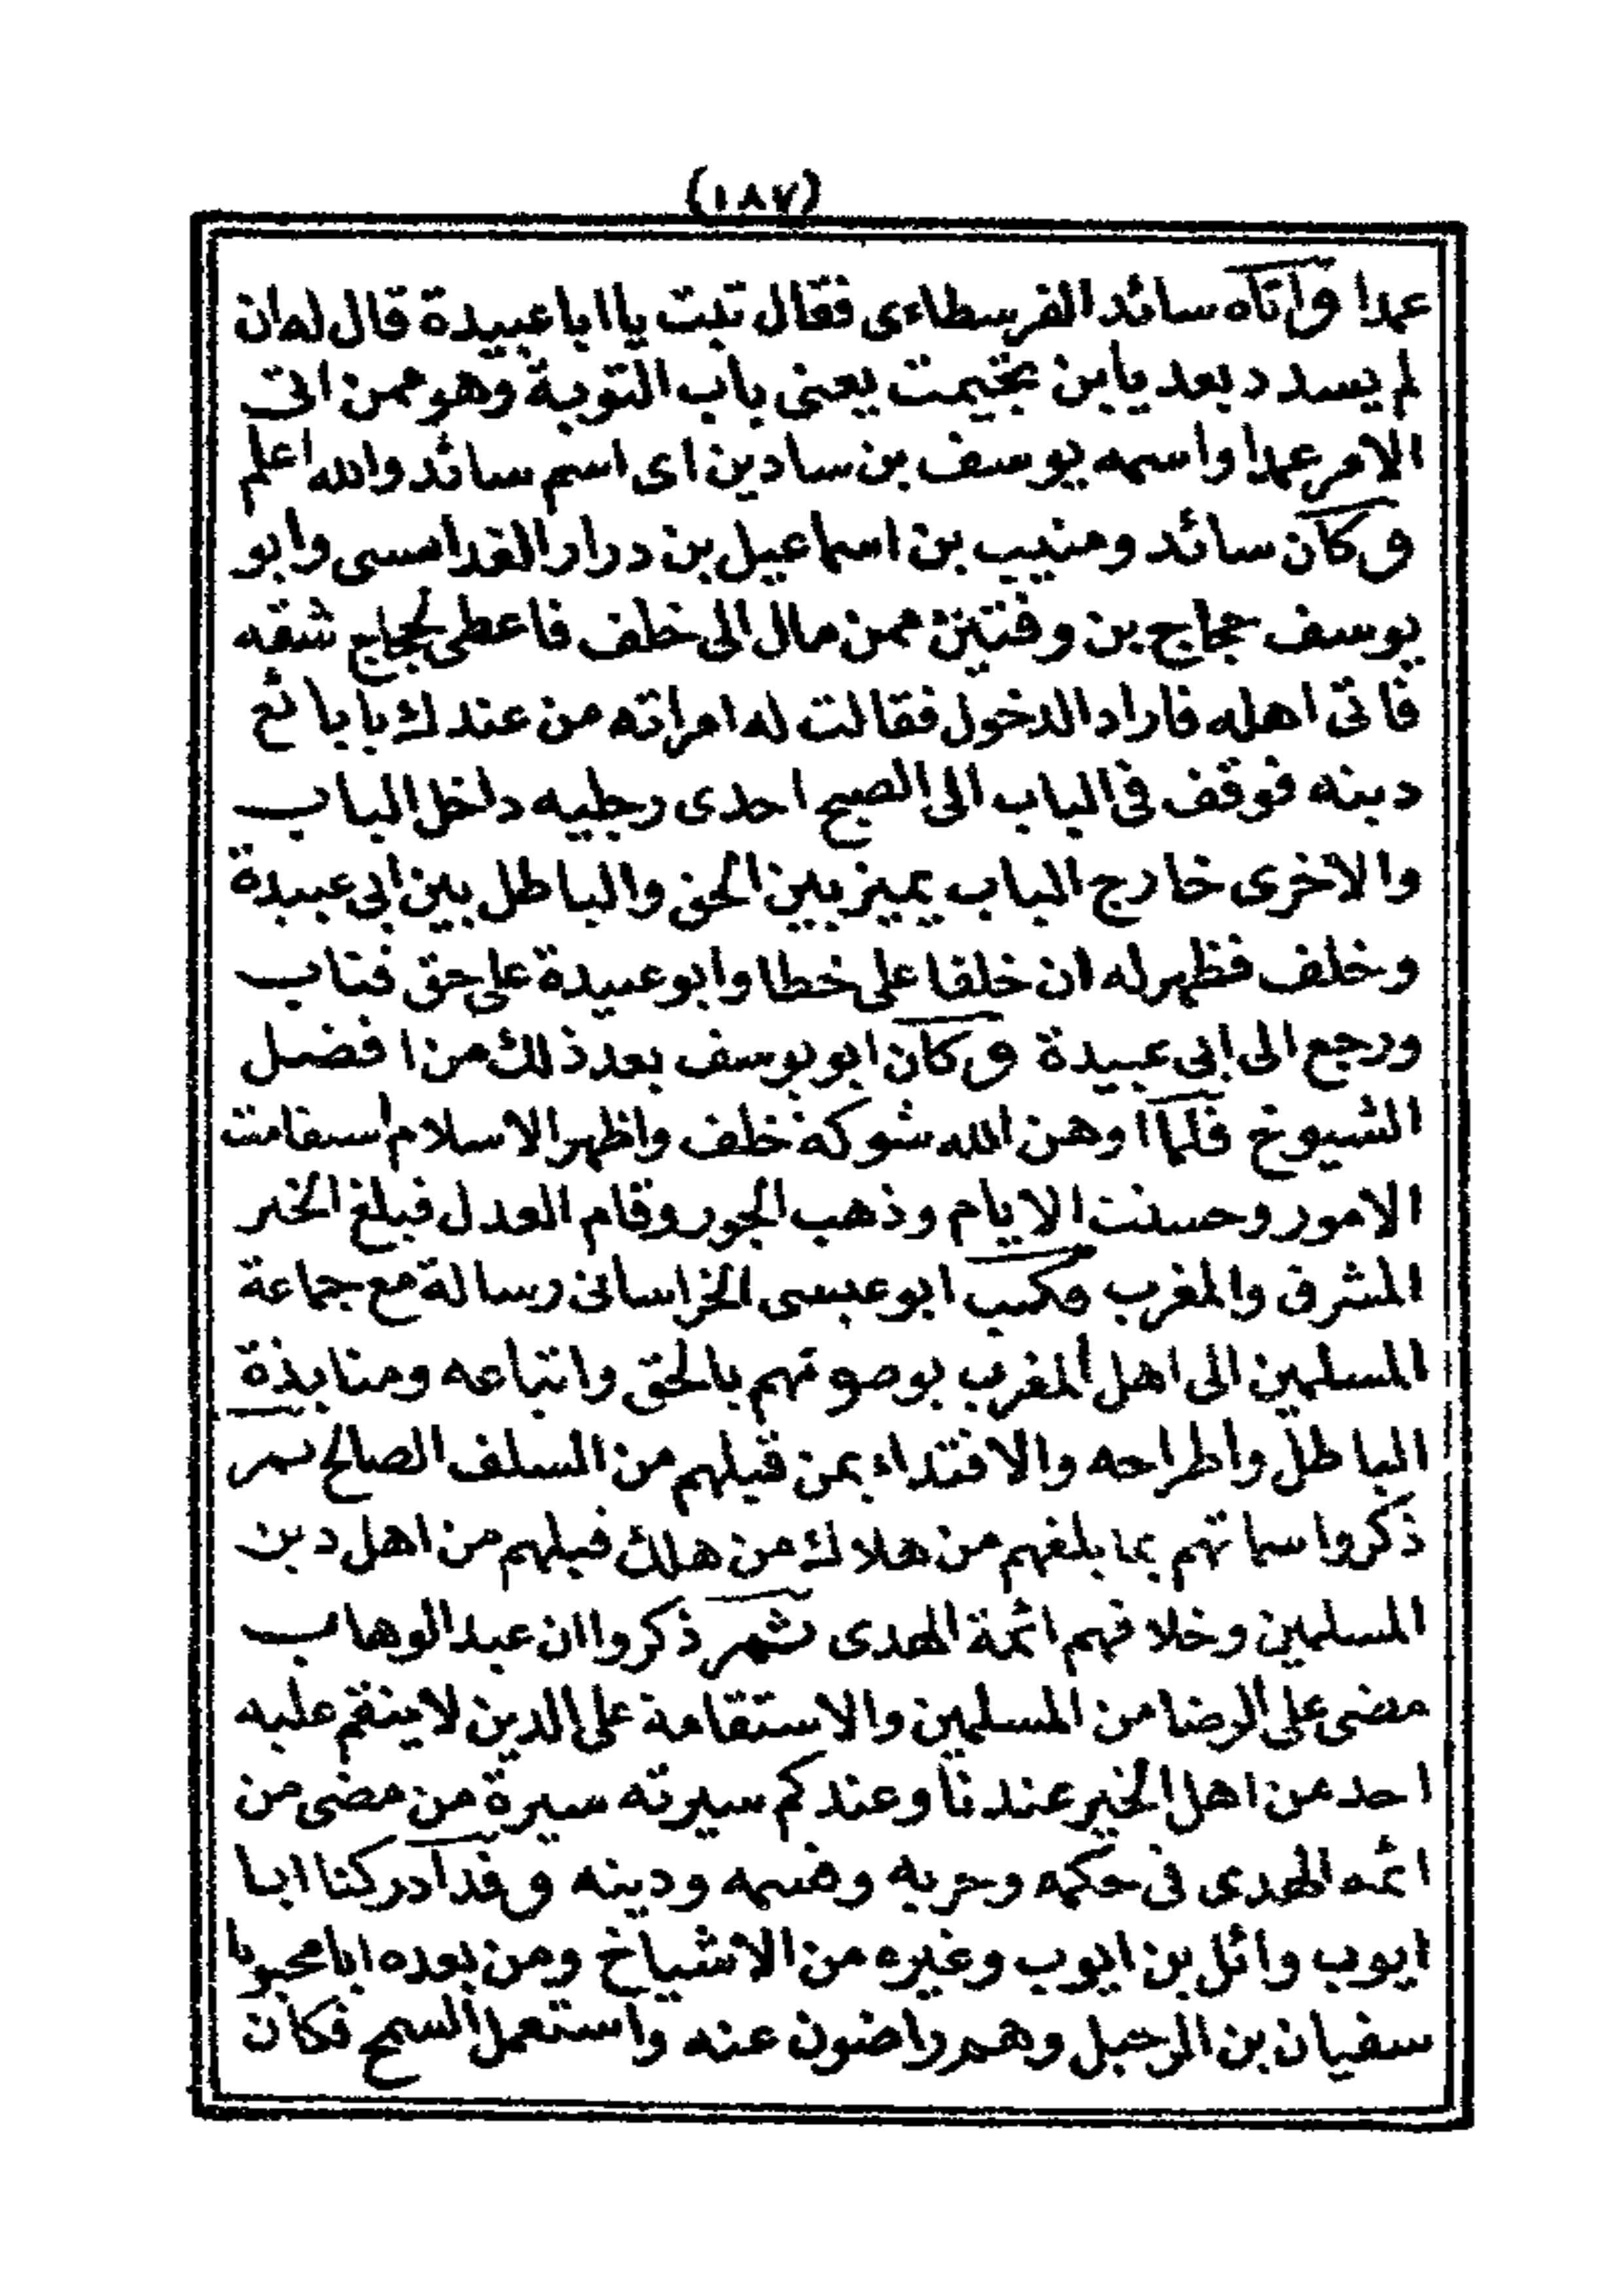 (١٨٧)
عمدا واتاه سائد الفرسطاءى فقال تبت يا ابا عبيدة قال له ان
لم يسدد بعد يابن يخيمت يعنى باب التوبة وهو ممن اتى
الامر عمدا واسمه يوسف بن سادين اى اسم سائد والله اعلم
وكان سائد ومنيب بن اسماعيل بن درار الغدامسى وابو
يوسف حجاج بن وفتين ممن مال الى خلف فاعطى لحجاج شقه
فاتى اهله فاراد الدخول فقالت له امراته من عندك يا بائع
دينه فوقف فى الباب الى الصبح احدى رجليه داخل الباب
والاخرى خارج الباب يميز بين الحق والباطل بين ابى عبيدة
وخلف فظهر له ان خلفا على خطا وابو عبيدة على حق فتاب
ورجع الى ابى عبيدة وكان ابو يوسف بعد ذلك من افضل
الشيوخ فلما اوهن الله شوكة خلف واظهر الاسلام استقامت
الامور وحسنت الايام وذهب الجور وقام العدل فبلغ الخبر
المشرق والمغرب فكتب ابو عيسى الخراسانى رسالة مع جماعة
المسلمين الى اهل المغرب يوصونهم بالحق واتباعه ومنابذة
الباطل واطراحه والاقتداء بمن قبلهم من السلف الصالح ثم
ذكروا سماتهم بما بلغهم من هلاك من هلك قبلهم من اهل دين
المسلمين وخلافهم ائمة الهدى ثم ذكروا ان عبد الوهاب
مضى على الرضا من المسلمين والاستقامة على الدين لا ينقم عليه
احد من اهل الخير عندنا وعندكم سيرته سيرة من مضى من
ائمه الهدى فى حكمه وحربه وقسمه ودينه وقد ادركنا ابا
ايوب وائل بن ايوب وغيره من الاشياخ ومن بعده ابا محبوبا
سفيان بن الرحيل وهم راضون عنه واستعمل السمح فكان